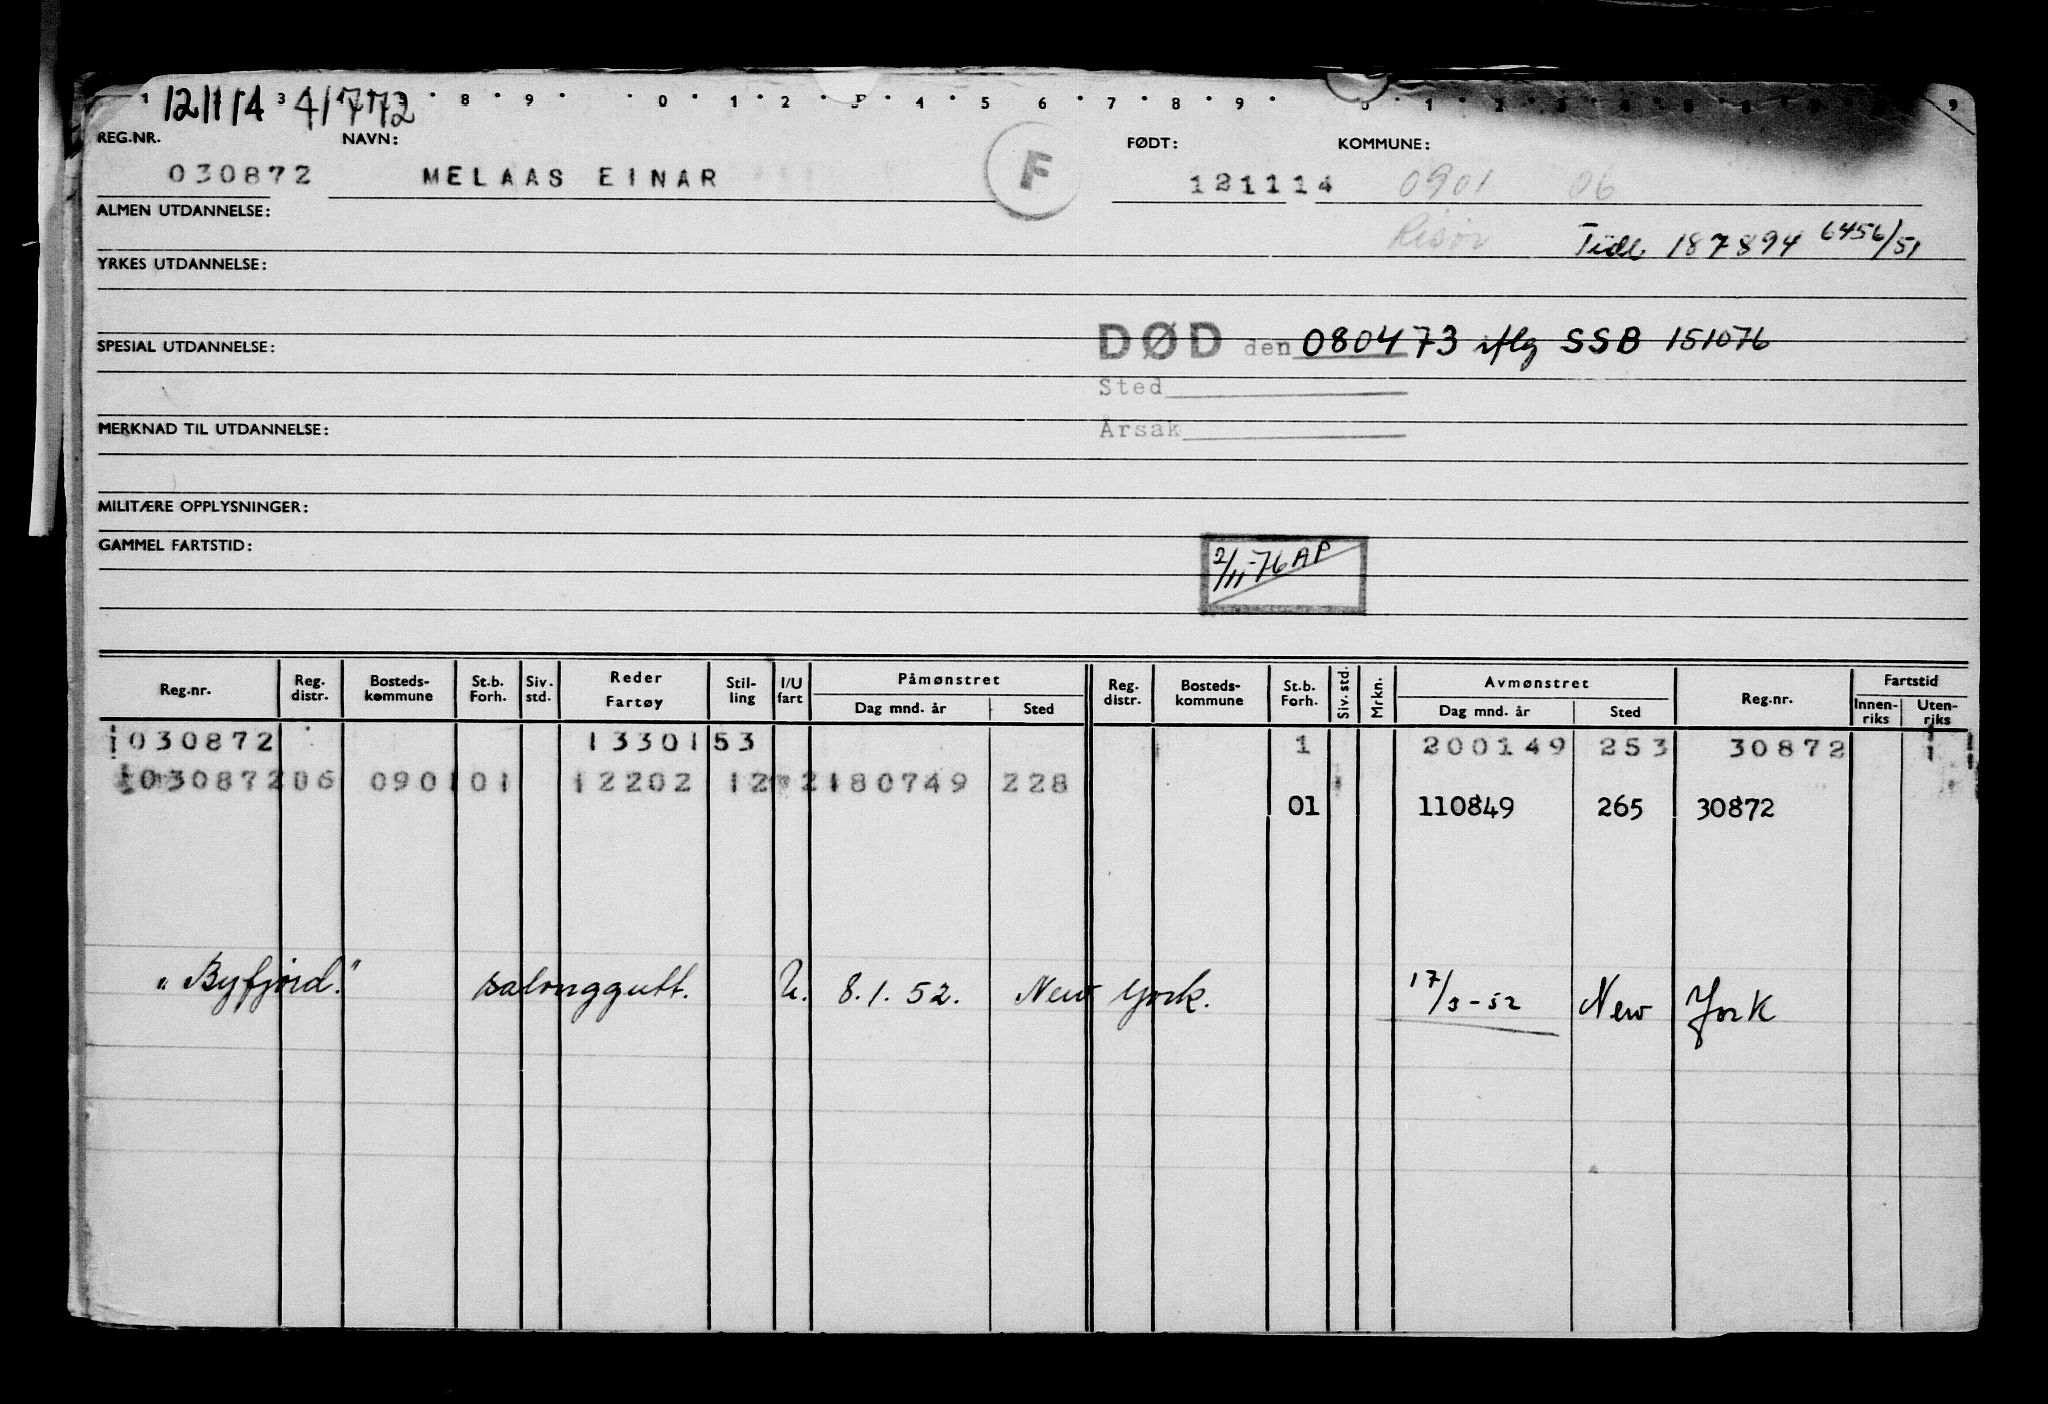 12/11 14 41772
REG.NR. NAVN: FØDT: KOMMUNE:
030872 MELAAS EINAR F 121114 0901 06
ALMEN UTDANNELSE: Risør Tidl 187894 6456/51
YRKES UTDANNELSE:
SPESIAL UTDANNELSE: DØD den 080473 iflg SSB 151076
Sted
MERKNAD TIL UTDANNELSE: Årsak
MILITÆRE OPPLYSNINGER:
GAMMEL FARTSTID: 2/11-76 AP
Reg.nr. Reg. distr. Bosteds-kommune St.b. Forh. Siv. std. Reder Fartøy Stil-ling I/U fart Påmønstret Dag mnd. år Sted Reg. distr. Bosteds-kommune St.b. Forh. Siv. std. Mrkn. Avmønstret Dag mnd. år Sted Reg.nr. Fartstid Innen-riks Uten-riks
030872 13301 53 1 200149 253 30872
030872 06 0901 01 12202 12 2 180749 228
01 110849 265 30872
"Byfjord." salonggutt. U. 8.1.52. New York. 17/3-52 New York